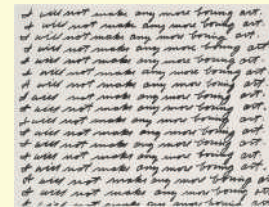 I will not make any more boring art.
I will not make any more boring art.
I will not make any more boring art.
I will not make any more boring art.
I will not make any more boring art.
I will not make any more boring art.
I will not make any more boring art.
I will not make any more boring art.
I will not make any more boring art.
I will not make any more boring art.
I will not make any more boring art.
I will not make any more boring art.
I will not make any more boring art.
I will not make any more boring ar
I will not make any more boring art
I will not make any more boring art